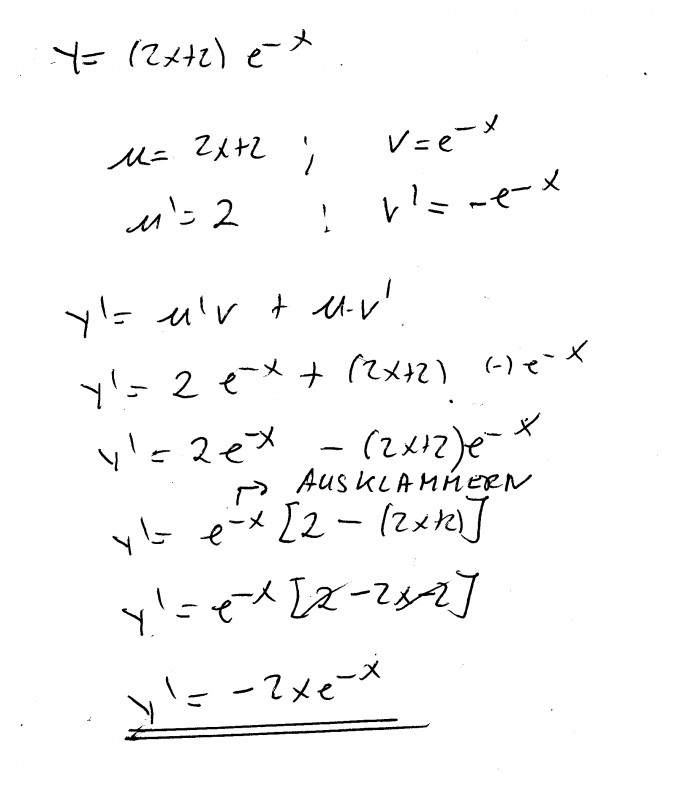 y = (2x+2) e^-x
u = 2x+2 ; v = e^-x
u' = 2 ; v' = -e^-x
y' = u'v + u·v'
y' = 2 e^-x + (2x+2) · (-) e^-x
y' = 2e^-x - (2x+2)e^-x
↱ AUSKLAMMERN
y' = e^-x [2 - (2x+2)]
y' = e^-x [2 - 2x - 2]
y' = -2xe^-x